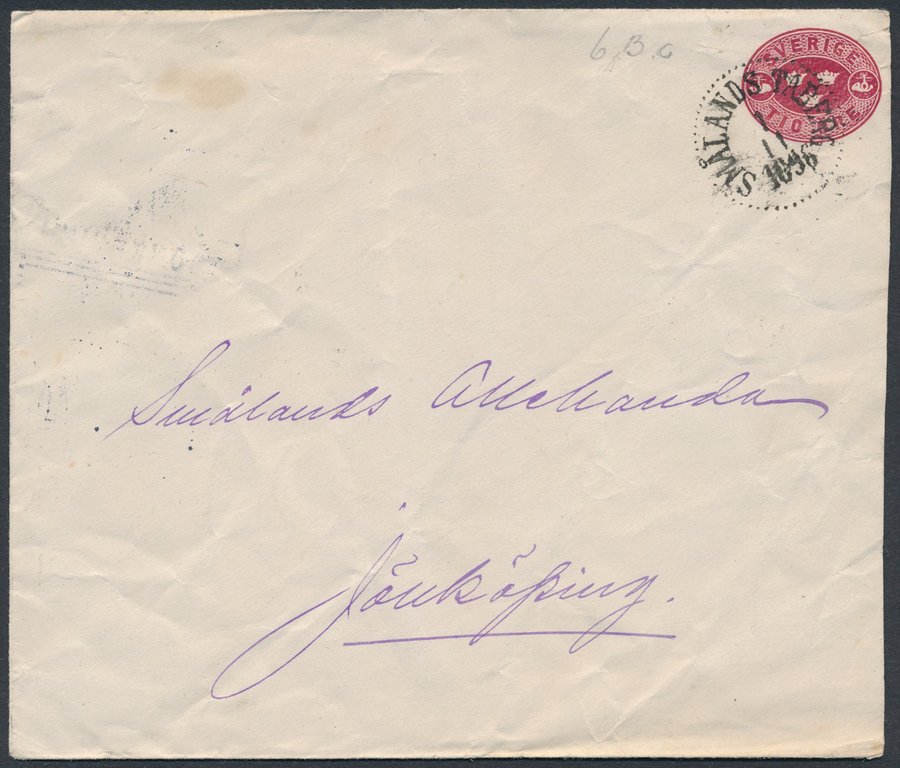 6, B. c
SVERIGE
TIO ÖRE
SMÅLANDS TABERG
1
11
1896
Smålands Allehanda
Jönköping.